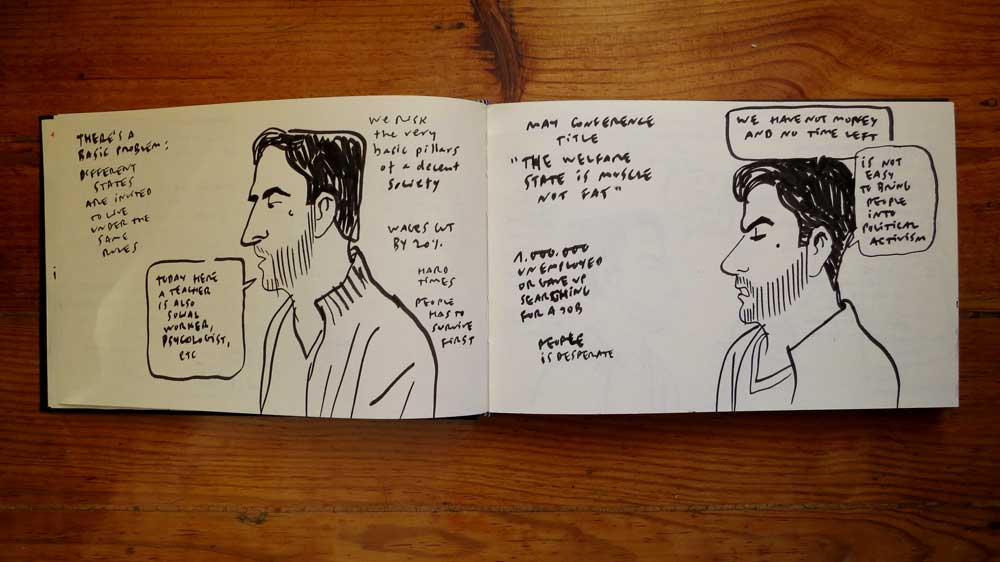 THERE'S A
BASIC PROBLEM:
DIFFERENT
STATES
ARE INVITED
TO LIVE
UNDER THE
SAME
RULES
TODAY HERE
A TEACHER
IS ALSO
SOCIAL
WORKER,
PSYCOLOGIST,
ETC
WE RISK
the very
basic pillars
of a decent
Society
WAGES CUT
BY 20%
HARD
TIMES
PEOPLE
HAS TO
SURVIVE
FIRST
MAY CONFERENCE
TITLE
"THE WELFARE
STATE IS MUSCLE
NOT FAT"
1.000.000
UNEMPLOYED
OR GAVE UP
SEARCHING
FOR A JOB
PEOPLE
IS DESPERATE
WE HAVE NOT MONEY
AND NO TIME LEFT
IS NOT
EASY
TO BRING
PEOPLE
INTO
POLITICAL
ACTIVISM